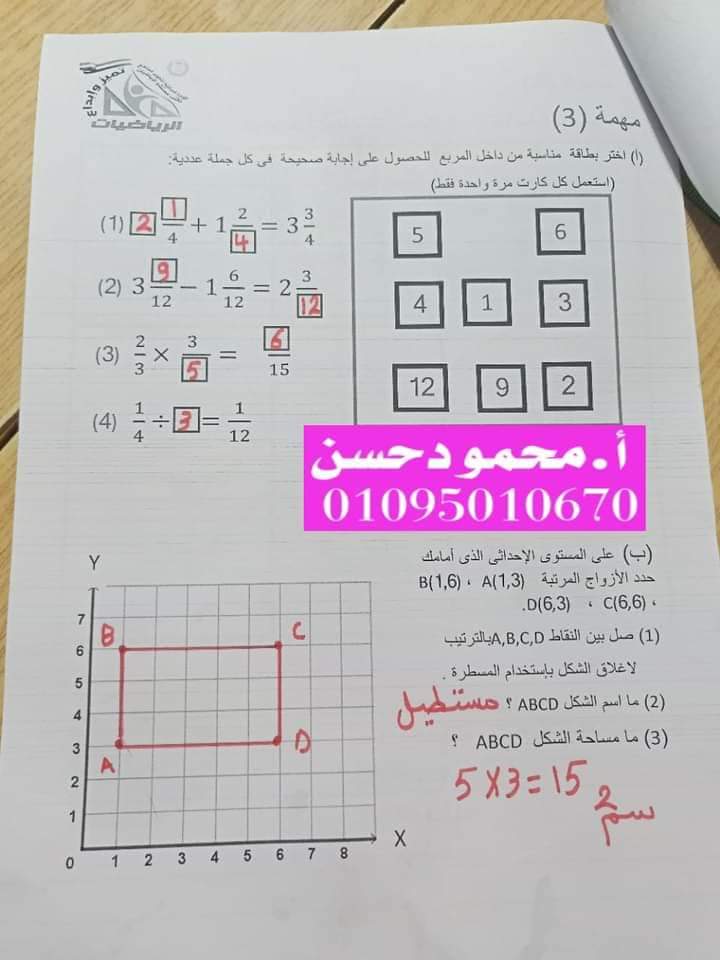 تميز وإبداع
الرياضيات
مهمة (3)
(أ) اختر بطاقة مناسبة من داخل المربع للحصول على إجابة صحيحة فى كل جملة عددية:
(استعمل كل كارت مرة واحدة فقط)
(1) 2 1/4 + 1 2/4 = 3 3/4
(2) 3 9/12 − 1 6/12 = 2 3/12
(3) 2/3 × 3/5 = 6/15
(4) 1/4 ÷ 3 = 1/12
5 6
4 1 3
12 9 2
أ.محمودحسن
01095010670
(ب) على المستوى الإحداثى الذى أمامك
حدد الأزواج المرتبة A(1,3) ، B(1,6)
، C(6,6) ، D(6,3).
(1) صل بين النقاط A,B,C,D بالترتيب
لاغلاق الشكل بإستخدام المسطرة .
(2) ما اسم الشكل ABCD ؟ مستطيل
(3) ما مساحة الشكل ABCD ؟
5 X 3 = 15 سم2
Y
7
6 B C
5
4
3 A D
2
1
0 1 2 3 4 5 6 7 8 X